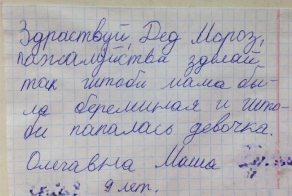 Здраствуй, Дед Мороз,
пожалуйства здилай,
так читоби мама бы-
ла беременая и чито-
би папалась девочка.
Олегавна Маша
9 лет.